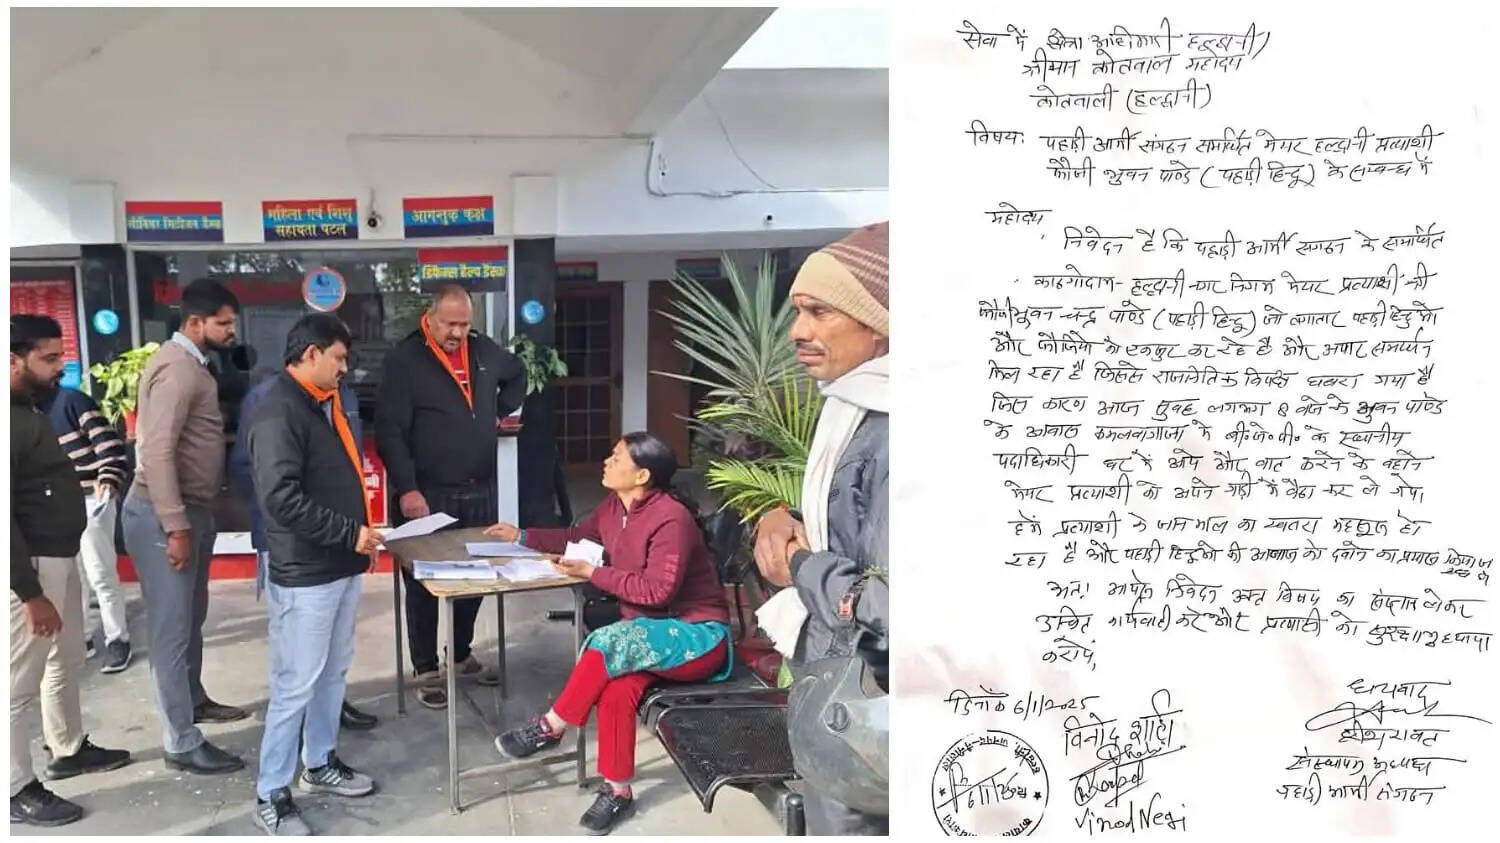 सीनियर सिटीजन डैस्क
महिला एवं शिशु
सहायता पटल
आगन्तुक कक्ष
डिफेन्स हैल्प डैस्क
सेवा में क्षेत्रा अधिकारी हल्द्वानी,
श्रीमान कोतवाल महोदय
कोतवाली (हल्द्वानी)
विषय: पहाड़ी आर्मी संगठन समर्थित मेयर हल्द्वानी प्रत्याशी
फौजी भुवन पाण्डे (पहाड़ी हिन्दू) के सम्बन्ध में
महोदय,
निवेदन है कि पहाड़ी आर्मी संगठन के समर्थित
काठगोदाम-हल्द्वानी नगर निगम मेयर प्रत्याशी श्री
फौजी भुवन चन्द्र पाण्डे (पहाड़ी हिन्दू) जो लगातार पहाड़ी हिन्दुओ
और फौजियो को एकजुट कर रहे है और अपार समर्थन
मिल रहा है जिससे राजनेतिक विपक्ष घबरा गया है
जिस कारण आज सुबह लगभग 8 बजे के भुवन पाण्डे
के आवास कमलवागांजा मे बी॰जे॰पी॰ के स्थानीय
पदाधिकारी घर में आये और बात करने के बहाने
मेयर प्रत्याशी को अपने गाड़ी में बैठा कर ले गये।
हमें प्रत्याशी के जान माल का खतरा महसूस हो
रहा है और पहाड़ी हिन्दुओ की आवाज को दबाने का प्रयास किया जा
रहा है
अतः आपसे निवेदन उक्त विषय का संज्ञान लेकर
उचित कार्यवाही करे और प्रत्याशी को सुरक्षा मुहैया
करायें,
दिनाँक 6/1/2025
धन्यवाद
विनोद शाही
हरीश रावत
संस्थापक अध्यक्ष
पहाड़ी आर्मी संगठन
Vinod Negi